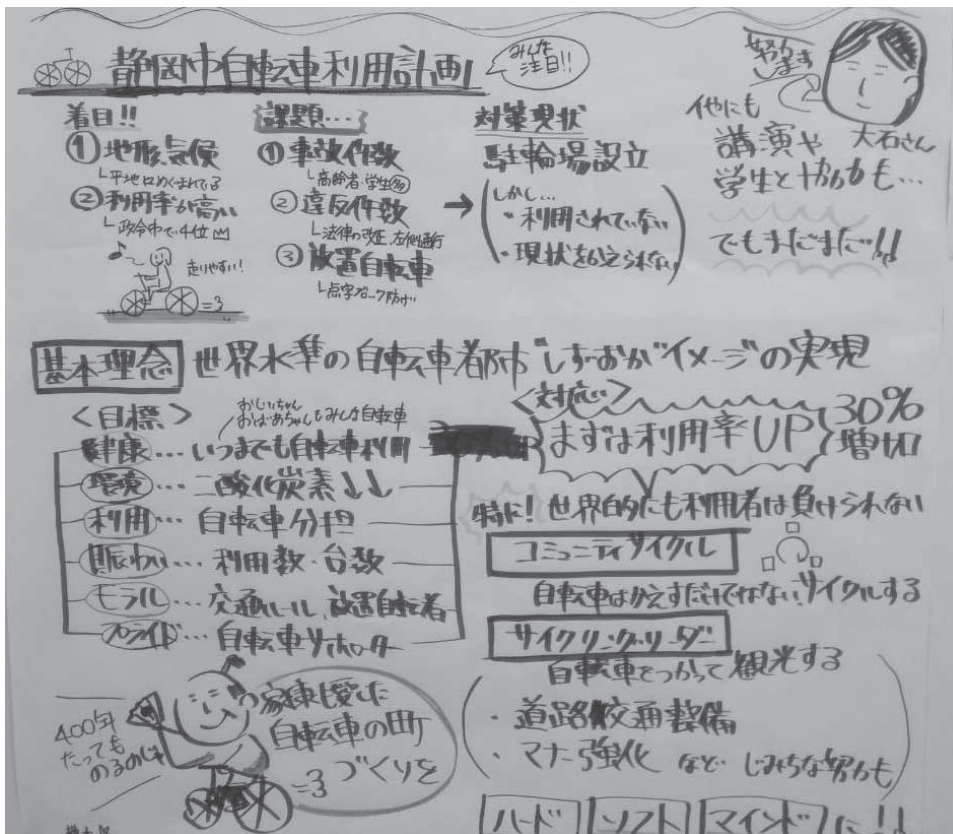 静岡市自転車利用計画
みんな注目!!
努力します
大石さん
着目!!
① 地形、気候
└平地にめぐまれている
② 利用率が高い
└政令中で4位
走りやすい!
=3
課題…
① 事故件数
└高齢者・学生多
② 違反件数
└法律の改正、左側通行
③ 放置自転車
└点字ブロック防げ
→
対策現状
駐輪場設立
しかし…
・利用されていない
・現状をかえられない
他にも
講演や
学生と協力も…
でもまだまだ!!
基本理念 世界水準の自転車都市"しずおか"イメージの実現
<目標>
おじいちゃん
おばあちゃんもみんな自転車
健康…いつまでも自転車利用
環境…二酸化炭素↓↓
利用…自転車分担
賑わい…利用数・台数
モラル…交通ルール、放置自転者
プライド…自転車サポーター
<対応>
まずは利用率UP
30%増加
特に!世界的にも利用者は負けられない
コミュニティサイクル
自転車はかえすだけではない、サイクルする
サイクリングリーダー
自転車をつかって観光する
・道路、交通整備
・マナー強化 など じみちな努力も
ハード ソフト マインド に!!
400年
たっても
のるのじゃ
家康も愛した
自転車の町
づくりを
=3